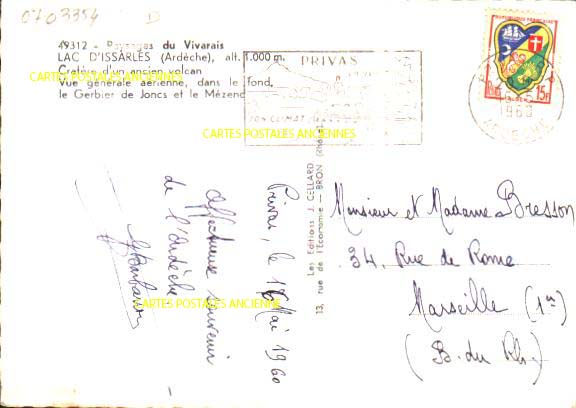 0703354 D
49312 - Paysages du Vivarais
LAC D'ISSARLÈS (Ardèche), alt. 1.000 m.
Cratère d'un ancien volcan
Vue générale aérienne, dans le fond,
le Gerbier de Joncs et le Mézenc
CARTES POSTALES ANCIENNES
PRIVAS
SON CLIMAT
REPUBLIQUE FRANÇAISE
ALGER
15F
1960
ARDECHE
CARTES POSTALES ANCIENNES
13, rue de l'Economie — BRON (Rhône)
Les Editions J. CELLARD
Privas, le 16 Mai 1960
Affectueux souvenir
de l'Ardèche
CARTES POSTALES ANCIENNES
Monsieur et Madame Bresson
34, Rue de Rome
Marseille (1er)
(B. du Rh.)